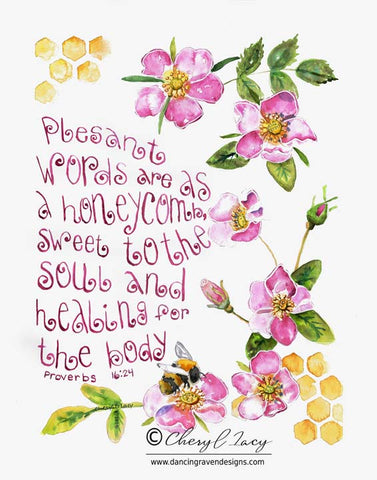 Plesant
words are as
a honeycomb,
sweet to the
soul and
healing for
the body
Proverbs 16:24
© Cheryl Lacy
www.dancingravendesigns.com